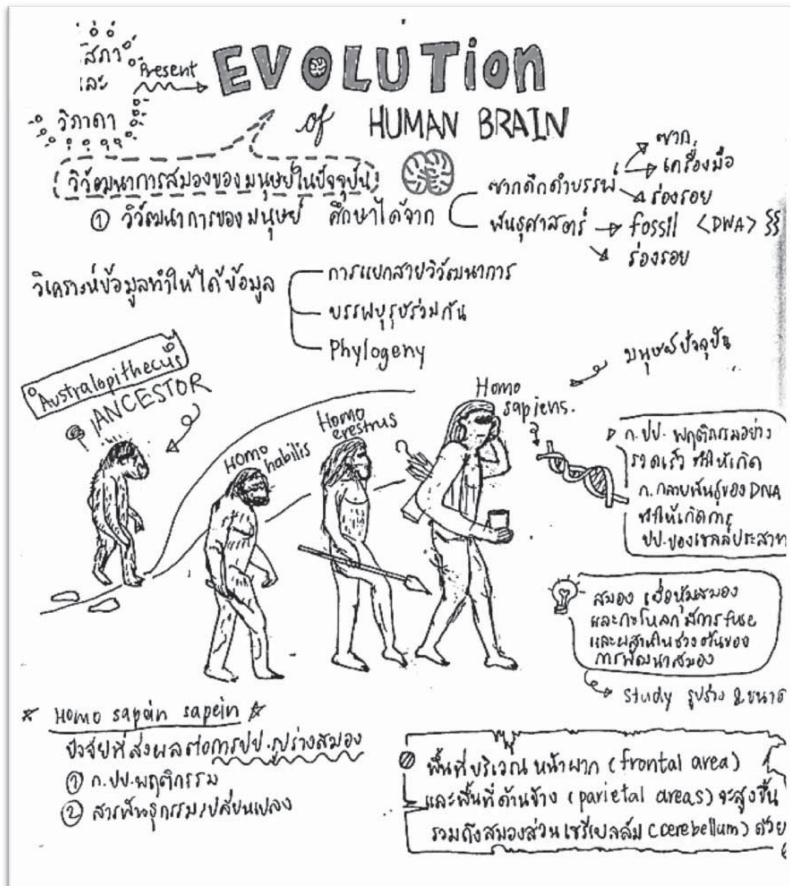 สภา
และ
วิภาดา
Present
EVOLUTion
of HUMAN BRAIN
(วิวัฒนาการสมองของมนุษย์ในปัจจุบัน)
① วิวัฒนาการของมนุษย์ ศึกษาได้จาก
ซากดึกดำบรรพ์
ซาก
เครื่องมือ
ร่องรอย
พันธุศาสตร์ → fossil <DNA>
ร่องรอย
วิเคราะห์ข้อมูลทำให้ได้ข้อมูล
การแยกสายวิวัฒนาการ
บรรพบุรุษร่วมกัน
Phylogeny
Australopithecus
ANCESTOR
Homo habilis
Homo erestrus
Homo sapiens.
มนุษย์ปัจจุบัน
ก.ปป. พฤติกรรมอย่าง
รวดเร็ว ทำให้เกิด
ก.กลายพันธุ์ของ DNA
ทำให้เกิดการ
ปป.ของเซลล์ประสาท
สมอง เยื่อหุ้มสมอง
และกะโหลก มีการ fuse
และผสานในช่วงต้นของ
การพัฒนาสมอง
Study รูปร่าง & ขนาด
Homo sapein sapein
ปัจจัยที่ส่งผลต่อการปป.รูปร่างสมอง
① ก.ปป.พฤติกรรม
② สารพันธุกรรมเปลี่ยนแปลง
พื้นที่บริเวณหน้าผาก (frontal area)
และพื้นที่ด้านข้าง (parietal areas) จะสูงขึ้น
รวมถึงสมองส่วนเซรีเบลลัม (cerebellum) ด้วย